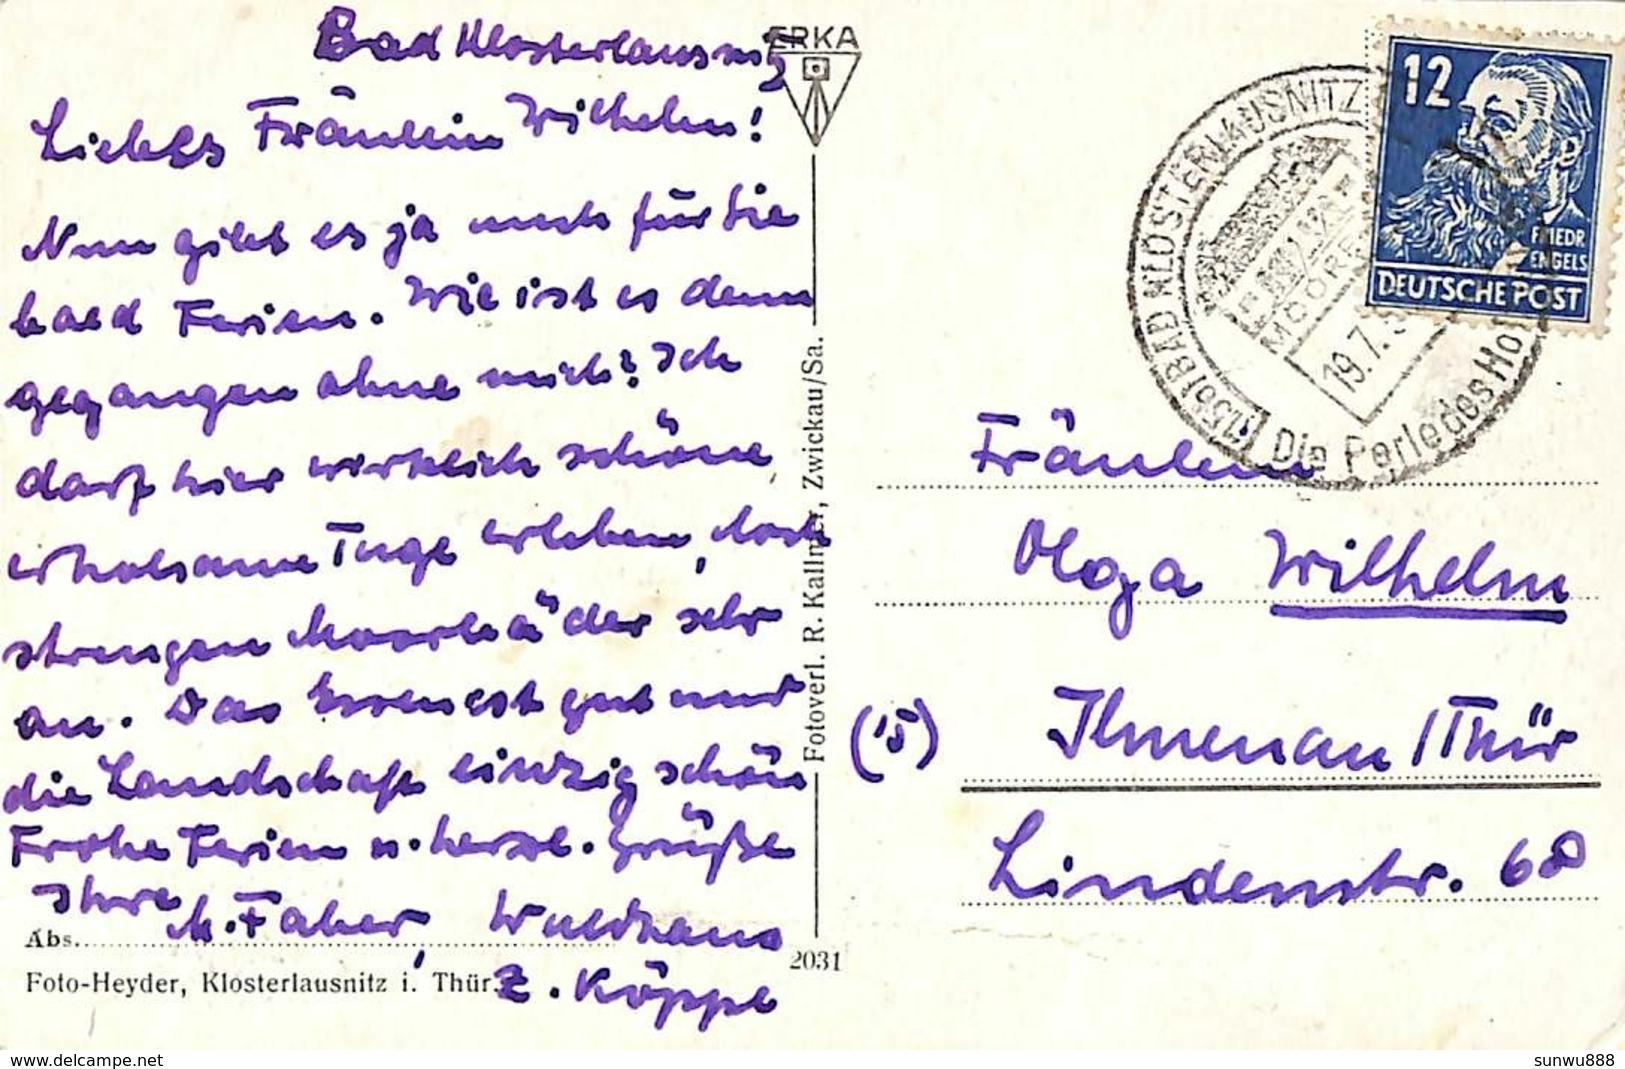 Bad Klosterlausnitz
Liebes Fräulein Wilhelm!
Nun gibt es ja auch für Sie
bald Ferien. Wie ist es denn
gegangen ohne mich? Ich
darf hier wirklich schöne
erholsame Tage erleben, doch
strengen Moorbäder sehr
an. Das Essen ist gut und
die Landschaft einzig schön
Frohe Ferien u. herzl. Grüße
Ihre
M. Faber, Waldhaus
z. Köppe
Abs.
Foto-Heyder, Klosterlausnitz i. Thür.
ERKA
Fotoverl. R. Kallmer, Zwickau/Sa.
2031
12
FRIEDR
ENGELS
DEUTSCHE POST
(15b) BAD KLOSTERLAUSNITZ
MOOR
19.7.5
Die Perle des Ho
Fräulein
Olga Wilhelm
(15) Ilmenau / Thür
Lindenstr. 68
www.delcampe.net
sunwu888